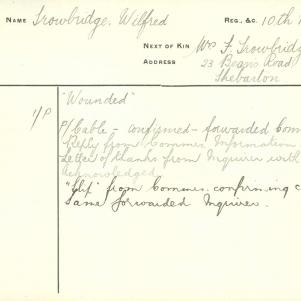 NAME Trowbridge. Wilfred REG., &C. 10th
NEXT OF KIN Mrs F Trowbridge
ADDRESS 23 Beans Road
Shebarton
1/P "Wounded"
P/Cable - confirmed - forwarded Com
Reply from Commr. Information
Letter of thanks from Inquirer with
Acknowledged
"Slip" from Commr. confirming c
Same forwarded Inquirer.